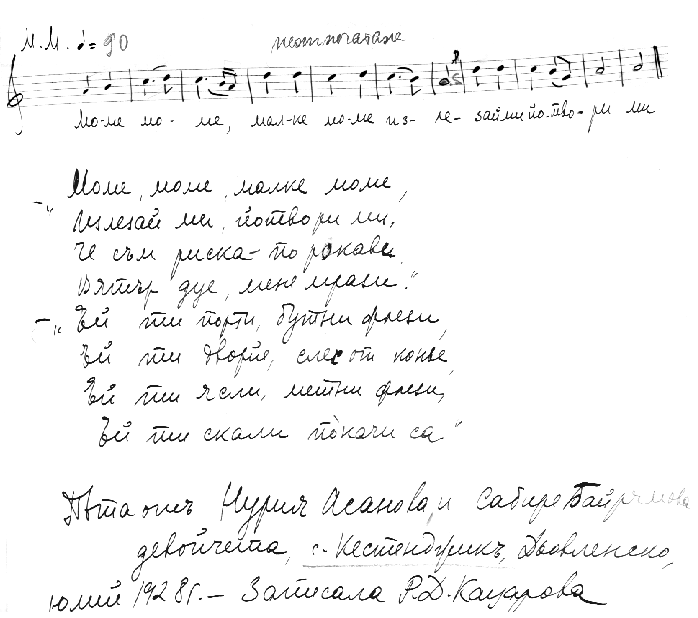 М.М. ♩= 90 неотпечатано
Мо-ме мо-ме, мал-ке мо-ме из-ле-зай ми йо-тво-ри ми
Моме, моме, малке моме,
– „Излезай ми, йотвори ми,
Че съм риска-по рокави
Вятър дуе, мене мрази."
– „Ей ти порти, бутни флези,
Ей ти дворйе, слес от конье,
Ей ти ясли, метни флези,
Ей ти скали покачи са"
Пѣта отъ Нурия Асанова, и Сабире Байрямова
девойчета, с. Кестенджикъ, Дьовленско,
юлий 1928г. – Записала Р.Д. Кацарова